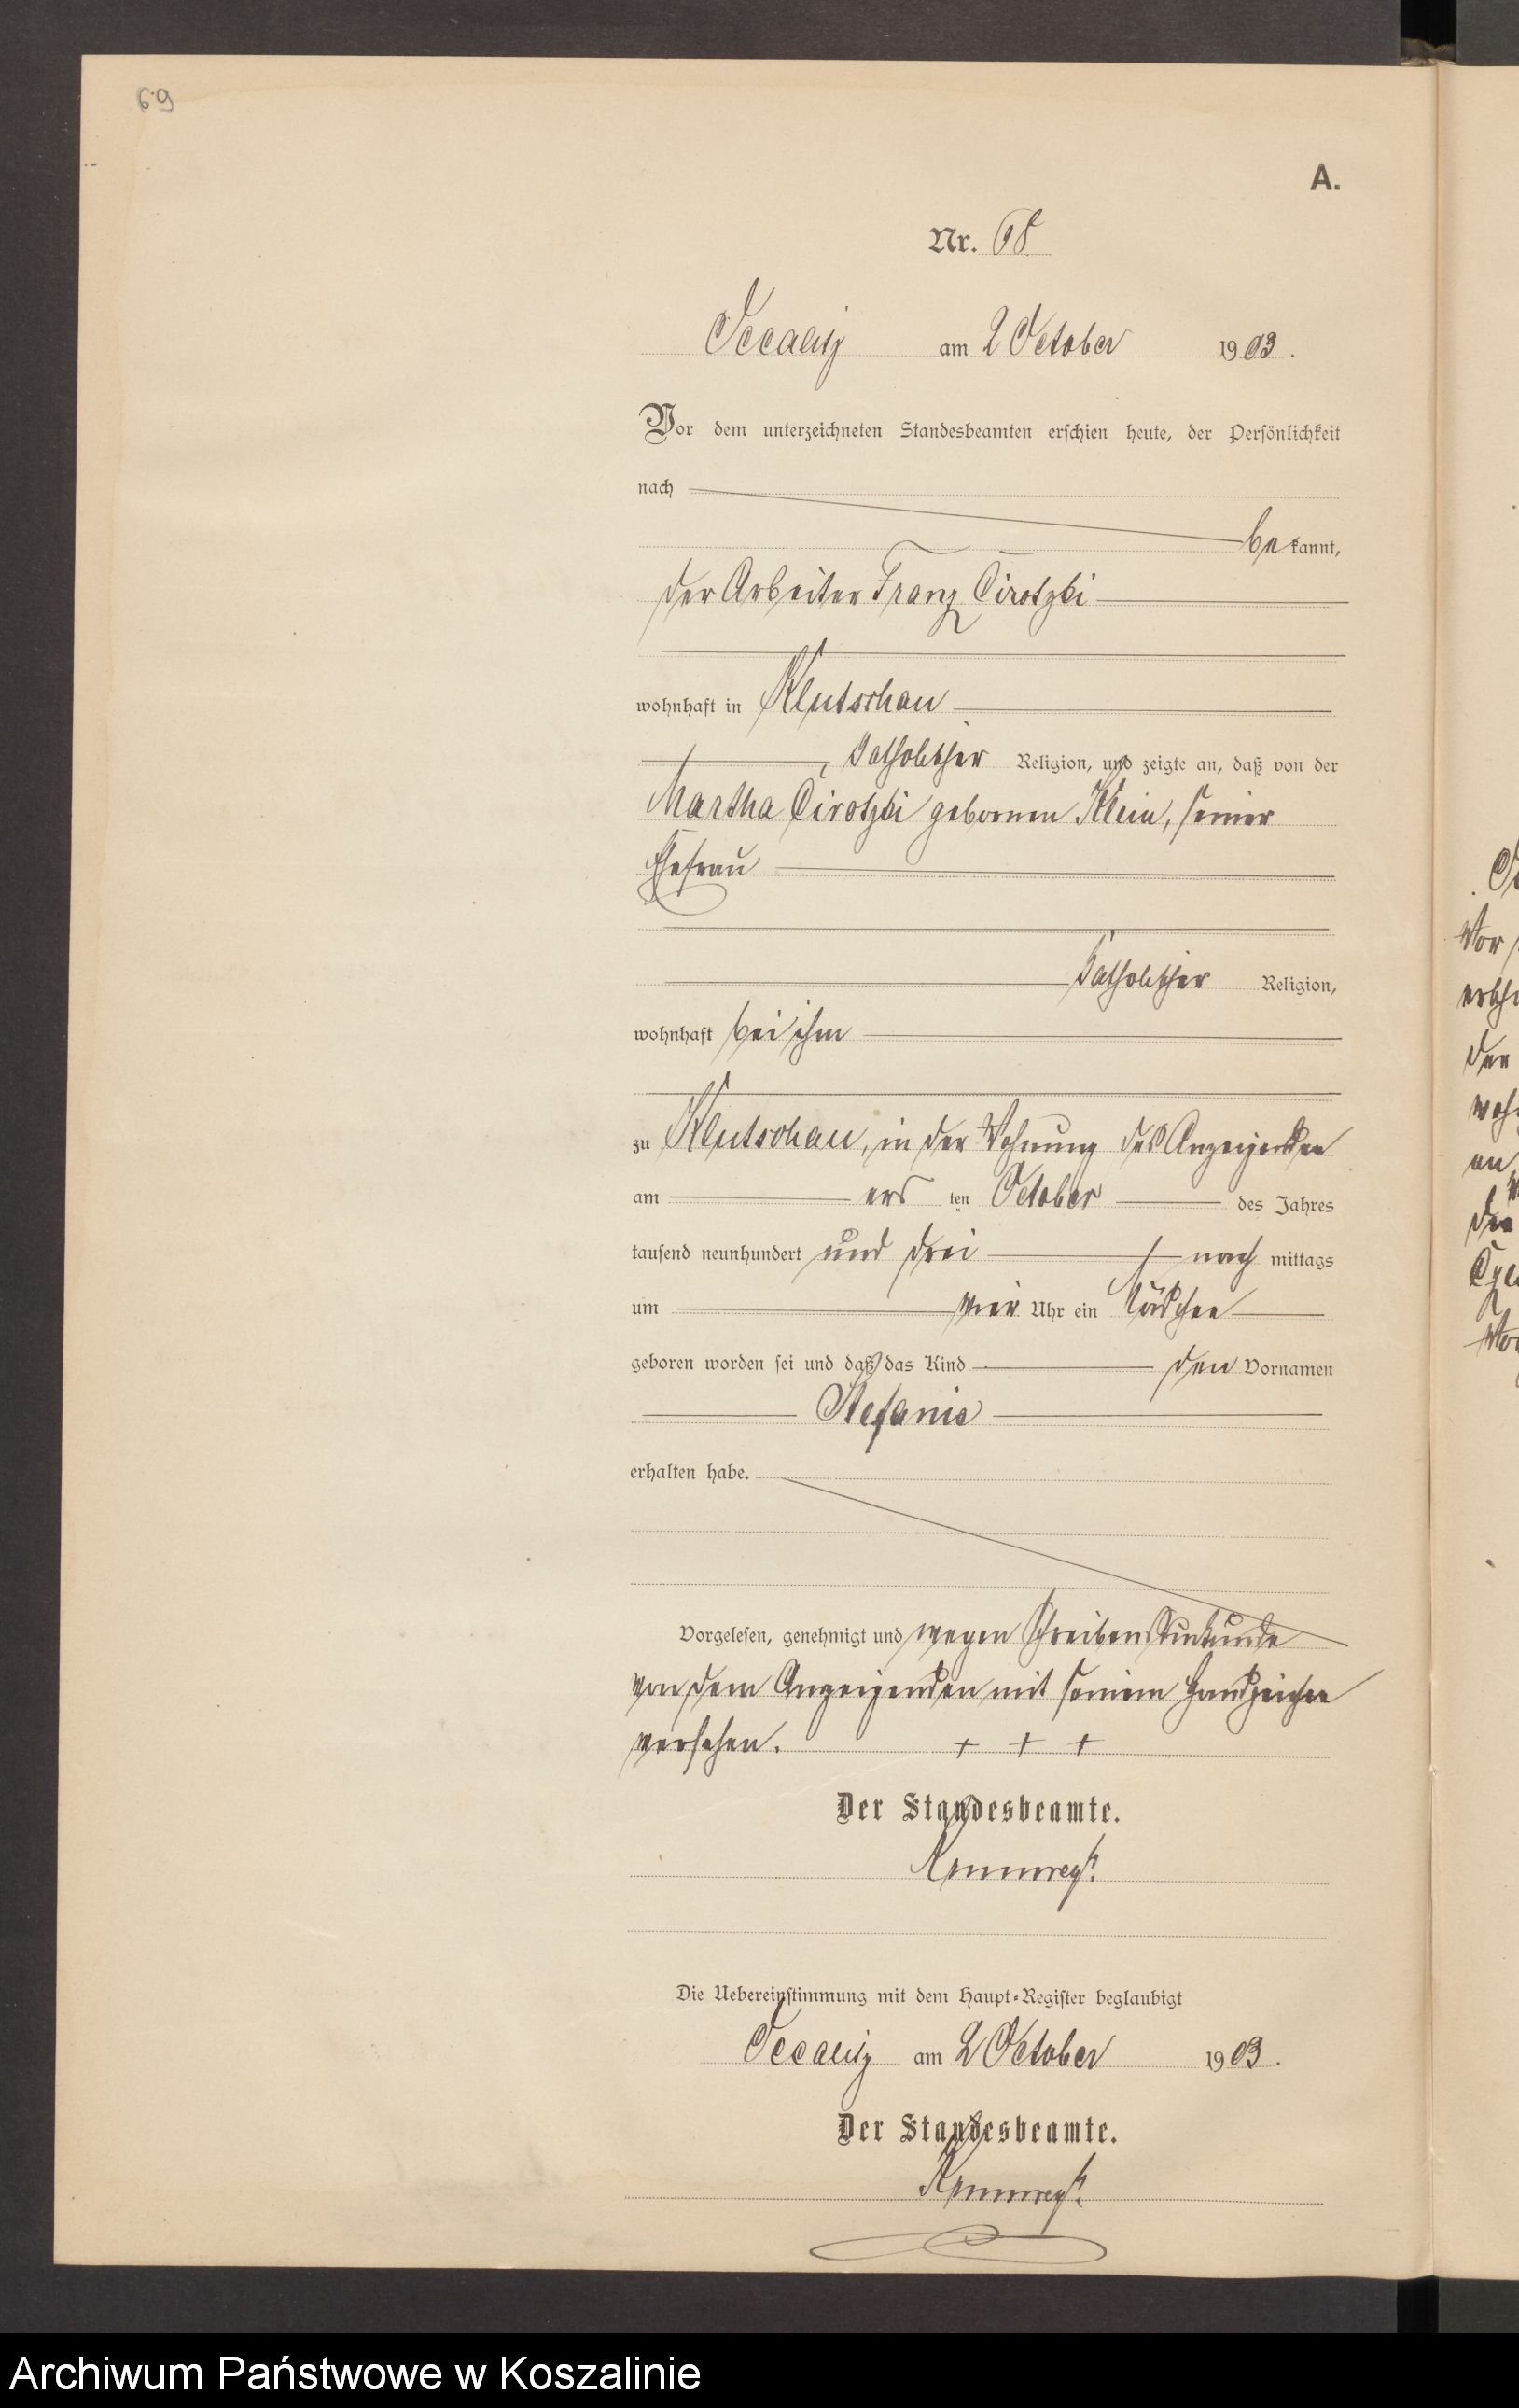 69
A.
Nr. 68
Occalitz am 2 October 1903.
Vor dem unterzeichneten Standesbeamten erschien heute, der Persönlichkeit
nach
bekannt,
der Arbeiter Franz Cirotzki
wohnhaft in Klutschau
, katholischer Religion, und zeigte an, daß von der
Martha Cirotzki gebornen Klein, seiner
Ehefrau
katholischer Religion,
wohnhaft bei ihm
zu Klutschau, in der Wohnung des Anzeigenden
am ersten October des Jahres
tausend neunhundert und drei nachmittags
um vier Uhr ein Mädchen
geboren worden sei und daß das Kind den Vornamen
Stefanie
erhalten habe.
Vorgelesen, genehmigt und wegen Schreibensunkunde
von dem Anzeigenden mit seinem Handzeichen
versehen. + + +
Der Standesbeamte.
Die Uebereinstimmung mit dem Haupt-Register beglaubigt
Occalitz am 2 October 1903.
Der Standesbeamte.
Vor
der
Archiwum Państwowe w Koszalinie